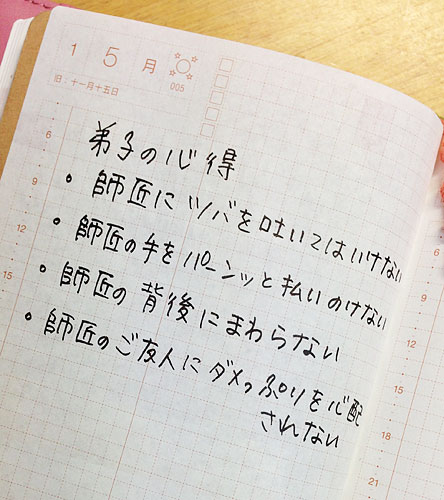 1 5 月
旧:十一月十五日 005
弟子の心得
• 師匠にツバを吐いてはいけない
• 師匠の手をパーンッと払いのけない
• 師匠の背後にまわらない
• 師匠のご友人にダメっぷりを心配
されない
6
9
12
15
6
15
18
21